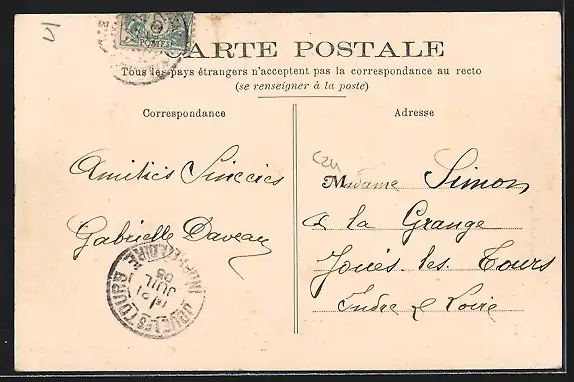 CARTE POSTALE
Tous les pays étrangers n'acceptent pas la correspondance au recto
(se renseigner à la poste)
Correspondance
Adresse
Amitiés Sincères
Gabrielle Daveau
Madame Simon
à la Grange
Joués-les-Tours
Indre & Loire
POSTES
JOUÉ-LES-TOURS
21
JUIL
08
INDRE-ET-LOIRE